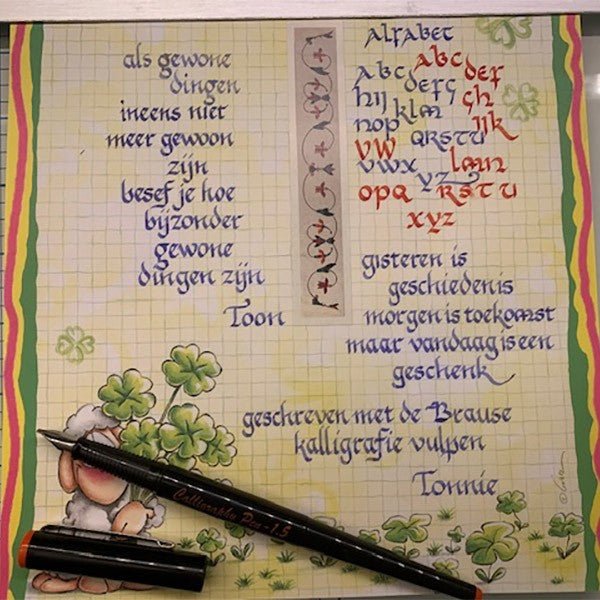 als gewone
dingen
ineens niet
meer gewoon
zijn
besef je hoe
bijzonder
gewone
dingen zijn
Toon
alfabet
abc
defg
hij
klm
nop
qrstu
vwx
yz
abc
def
gh
ijk
lmn
opq
rstu
vw
xyz
gisteren is
geschiedenis
morgen is toekomst
maar vandaag is een
geschenk
geschreven met de Brause
kalligrafie vulpen
Tonnie
Calligraphy Pen - 1.5